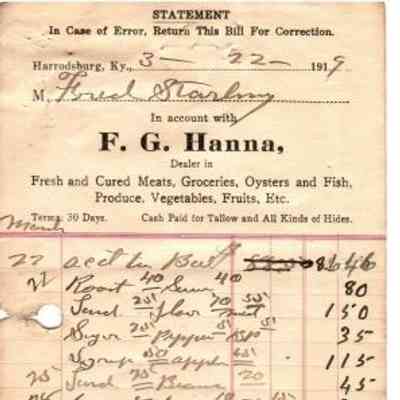 STATEMENT
In Case of Error, Return This Bill For Correction.
Harrodsburg, Ky., 3 - 22 - 1919
M Fred
In account with
F. G. Hanna,
Dealer in
Fresh and Cured Meats, Groceries, Oysters and Fish,
Produce, Vegetables, Fruits, Etc.
Terms 30 Days. Cash Paid for Tallow and All Kinds of Hides.
March
22 acct 46
22 40 40 80
flour 70 meal 150
Pepper 35
Syrup 50 apples 65 115
25 20 45